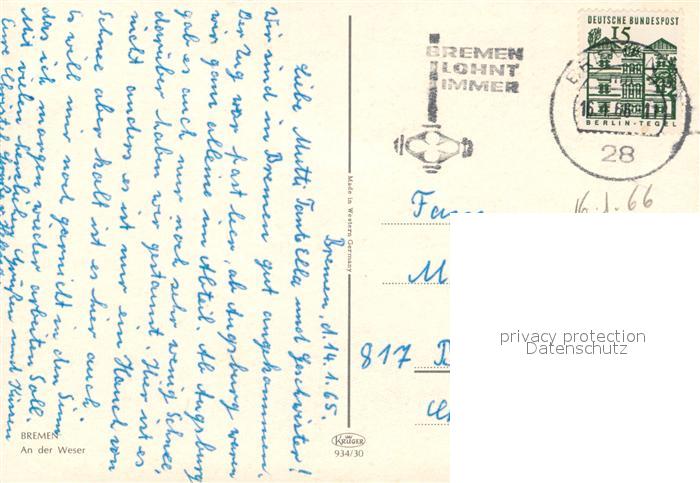 Bremen, d. 14.1.65.
Liebe Mutti Tante Ella und Geschwister!
Wir sind in Bremen gut angekommen.
Der Zug war fast leer, ab Augsburg waren
wir ganz alleine im Abteil. Ab Augsburg
gab es auch nur noch sehr wenig Schnee,
darüber haben wir gestaunt. Hier ist es
nicht anders es ist nur ein Hauch von
Schnee aber kalt ist es hier auch.
Es will mir noch garnicht in den Sinn
das ich morgen wieder arbeiten soll.
Mit vielen herzlich Grüßen und Küssen
Eure
BREMEN
An der Weser
Made in Western Germany
KRÜGER
934/30
BREMEN
LOHNT
IMMER
DEUTSCHE BUNDESPOST
15
BERLIN-TEGEL
28
16.1.66
Fa
M
817 B
privacy protection
Datenschutz